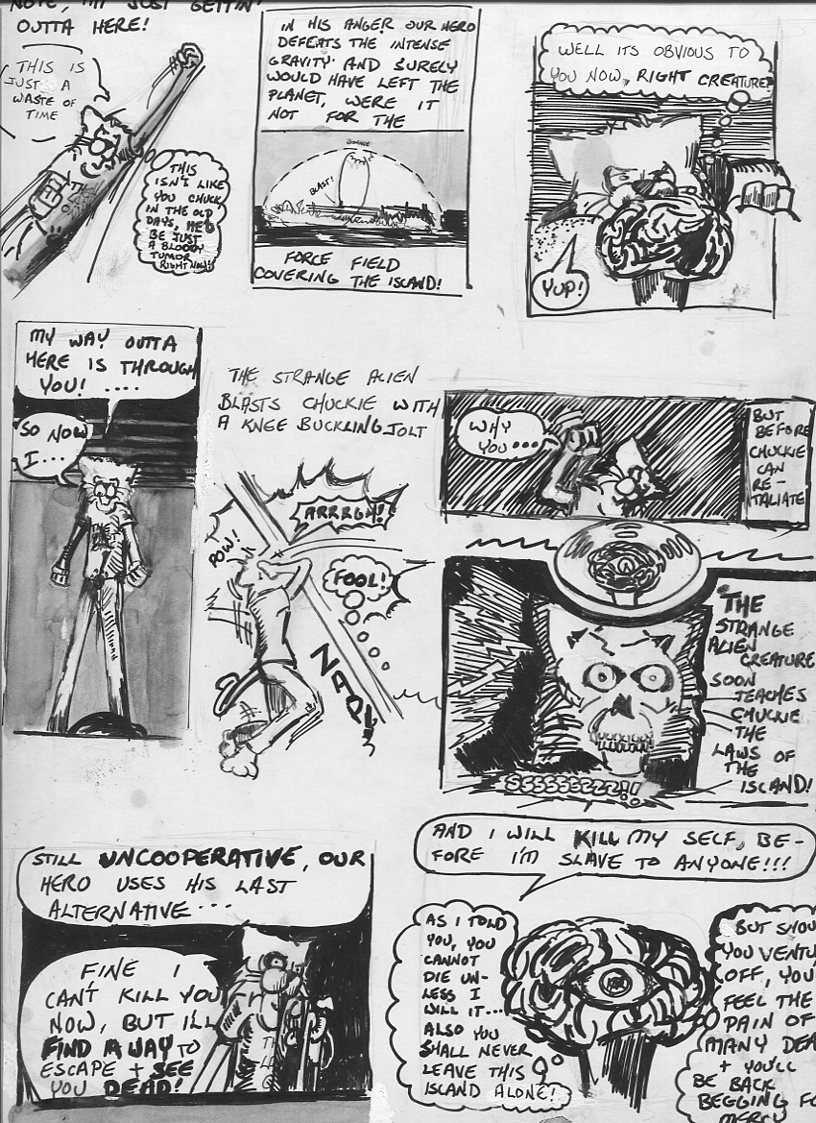 NOTE, I'M JUST GETTIN'
OUTTA HERE!
THIS IS
JUST A
WASTE OF
TIME
THIS
ISN'T LIKE
YOU CHUCK,
IN THE OLD
DAYS, HE'D
BE JUST
A BLOODY
TUMOR
RIGHT NOW!
IN HIS ANGER OUR HERO
DEFEATS THE INTENSE
GRAVITY AND SURELY
WOULD HAVE LEFT THE
PLANET, WERE IT
NOT FOR THE
BLAST!
FORCE FIELD
COVERING THE ISLAND!
WELL ITS OBVIOUS TO
YOU NOW, RIGHT CREATURE?
YUP!
MY WAY OUTTA
HERE IS THROUGH
YOU! ....
SO NOW
I...
THE STRANGE ALIEN
BLASTS CHUCKIE WITH
A KNEE BUCKLING JOLT
POW!
ARRRGH!
FOOL!
ZAP!
WHY
YOU....
BUT
BEFORE
CHUCKIE
CAN
RE-
TALIATE
THE
STRANGE
ALIEN
CREATURE
SOON
TEACHES
CHUCKIE
THE
LAWS OF
THE
ISLAND!
SSSSSSZZZ!!
STILL UNCOOPERATIVE, OUR
HERO USES HIS LAST
ALTERNATIVE...
FINE I
CAN'T KILL YOU
NOW, BUT I'LL
FIND A WAY TO
ESCAPE + SEE
YOU DEAD!
AND I WILL KILL MY SELF, BE-
FORE I'M SLAVE TO ANYONE!!!
AS I TOLD
YOU, YOU
CANNOT
DIE UN-
LESS I
WILL IT...
ALSO YOU
SHALL NEVER
LEAVE THIS
ISLAND ALONE!
BUT SHOU
YOU VENTU
OFF, YOU
FEEL THE
PAIN OF
MANY DEA
+ YOU'LL
BE BACK
BEGGING FO
MERCY